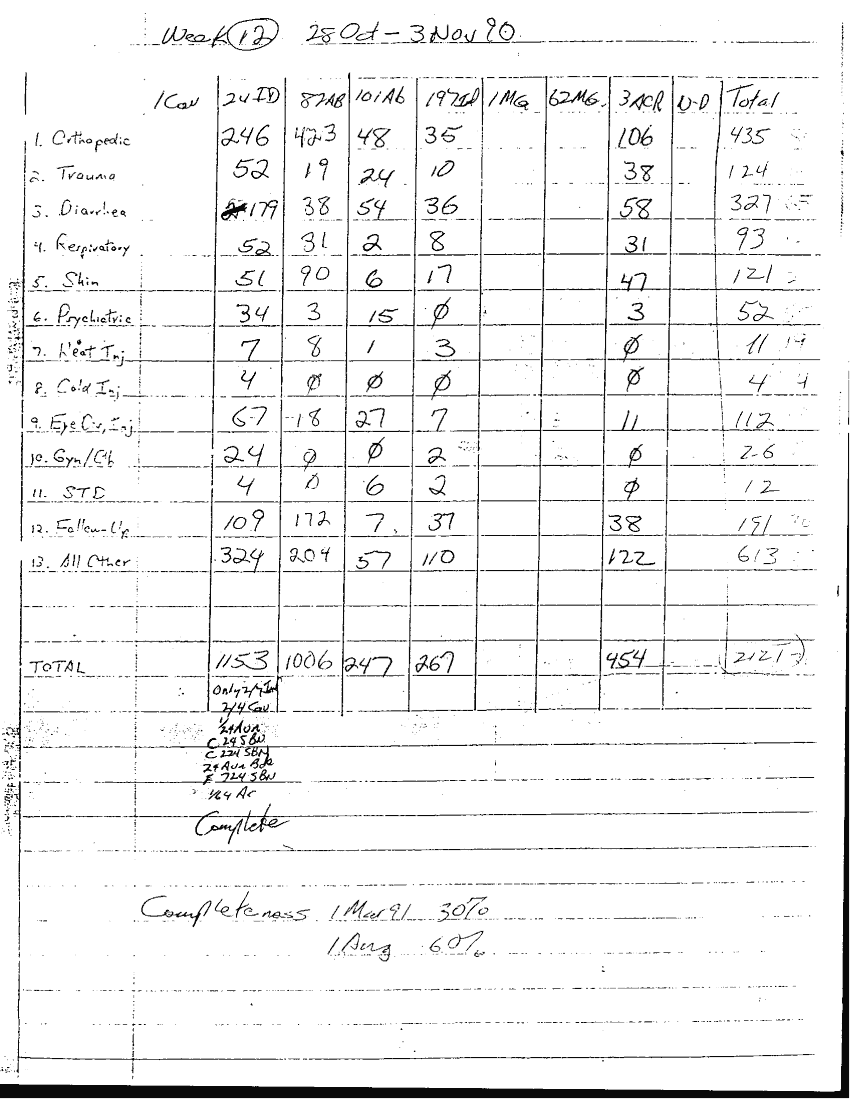 Week 12 28 Oct - 3 Nov 90
1 Cav 24 ID 82AB 101Ab 197 1 MG 62 MG. 3 ACR Total
1. Orthopedic 246 423 48 35 106 435
2. Trauma 52 19 24 10 38 124
3. Diarrhea 179 38 54 36 58 327
4. Respiratory 52 31 2 8 31 93
5. Skin 51 90 6 17 47 121
6. Psychiatric 34 3 15 Ø 3 52
7. Heat Inj 7 8 1 3 Ø 11 19
8. Cold Inj 4 Ø Ø Ø Ø 4 4
9. Eye Inj 67 18 27 7 11 112
10. Gyn/Ob 24 Ø Ø 2 Ø 26
11. STD 4 Ø 6 2 Ø 12
12. Follow-Up 109 172 7 37 38 191
13. All Other 324 204 57 110 122 613
TOTAL 1153 1006 247 267 454 2121
2/4 Cav
24 Avn Bde
Complete
Completeness 1 Mar 91 30%
1 Aug 60%